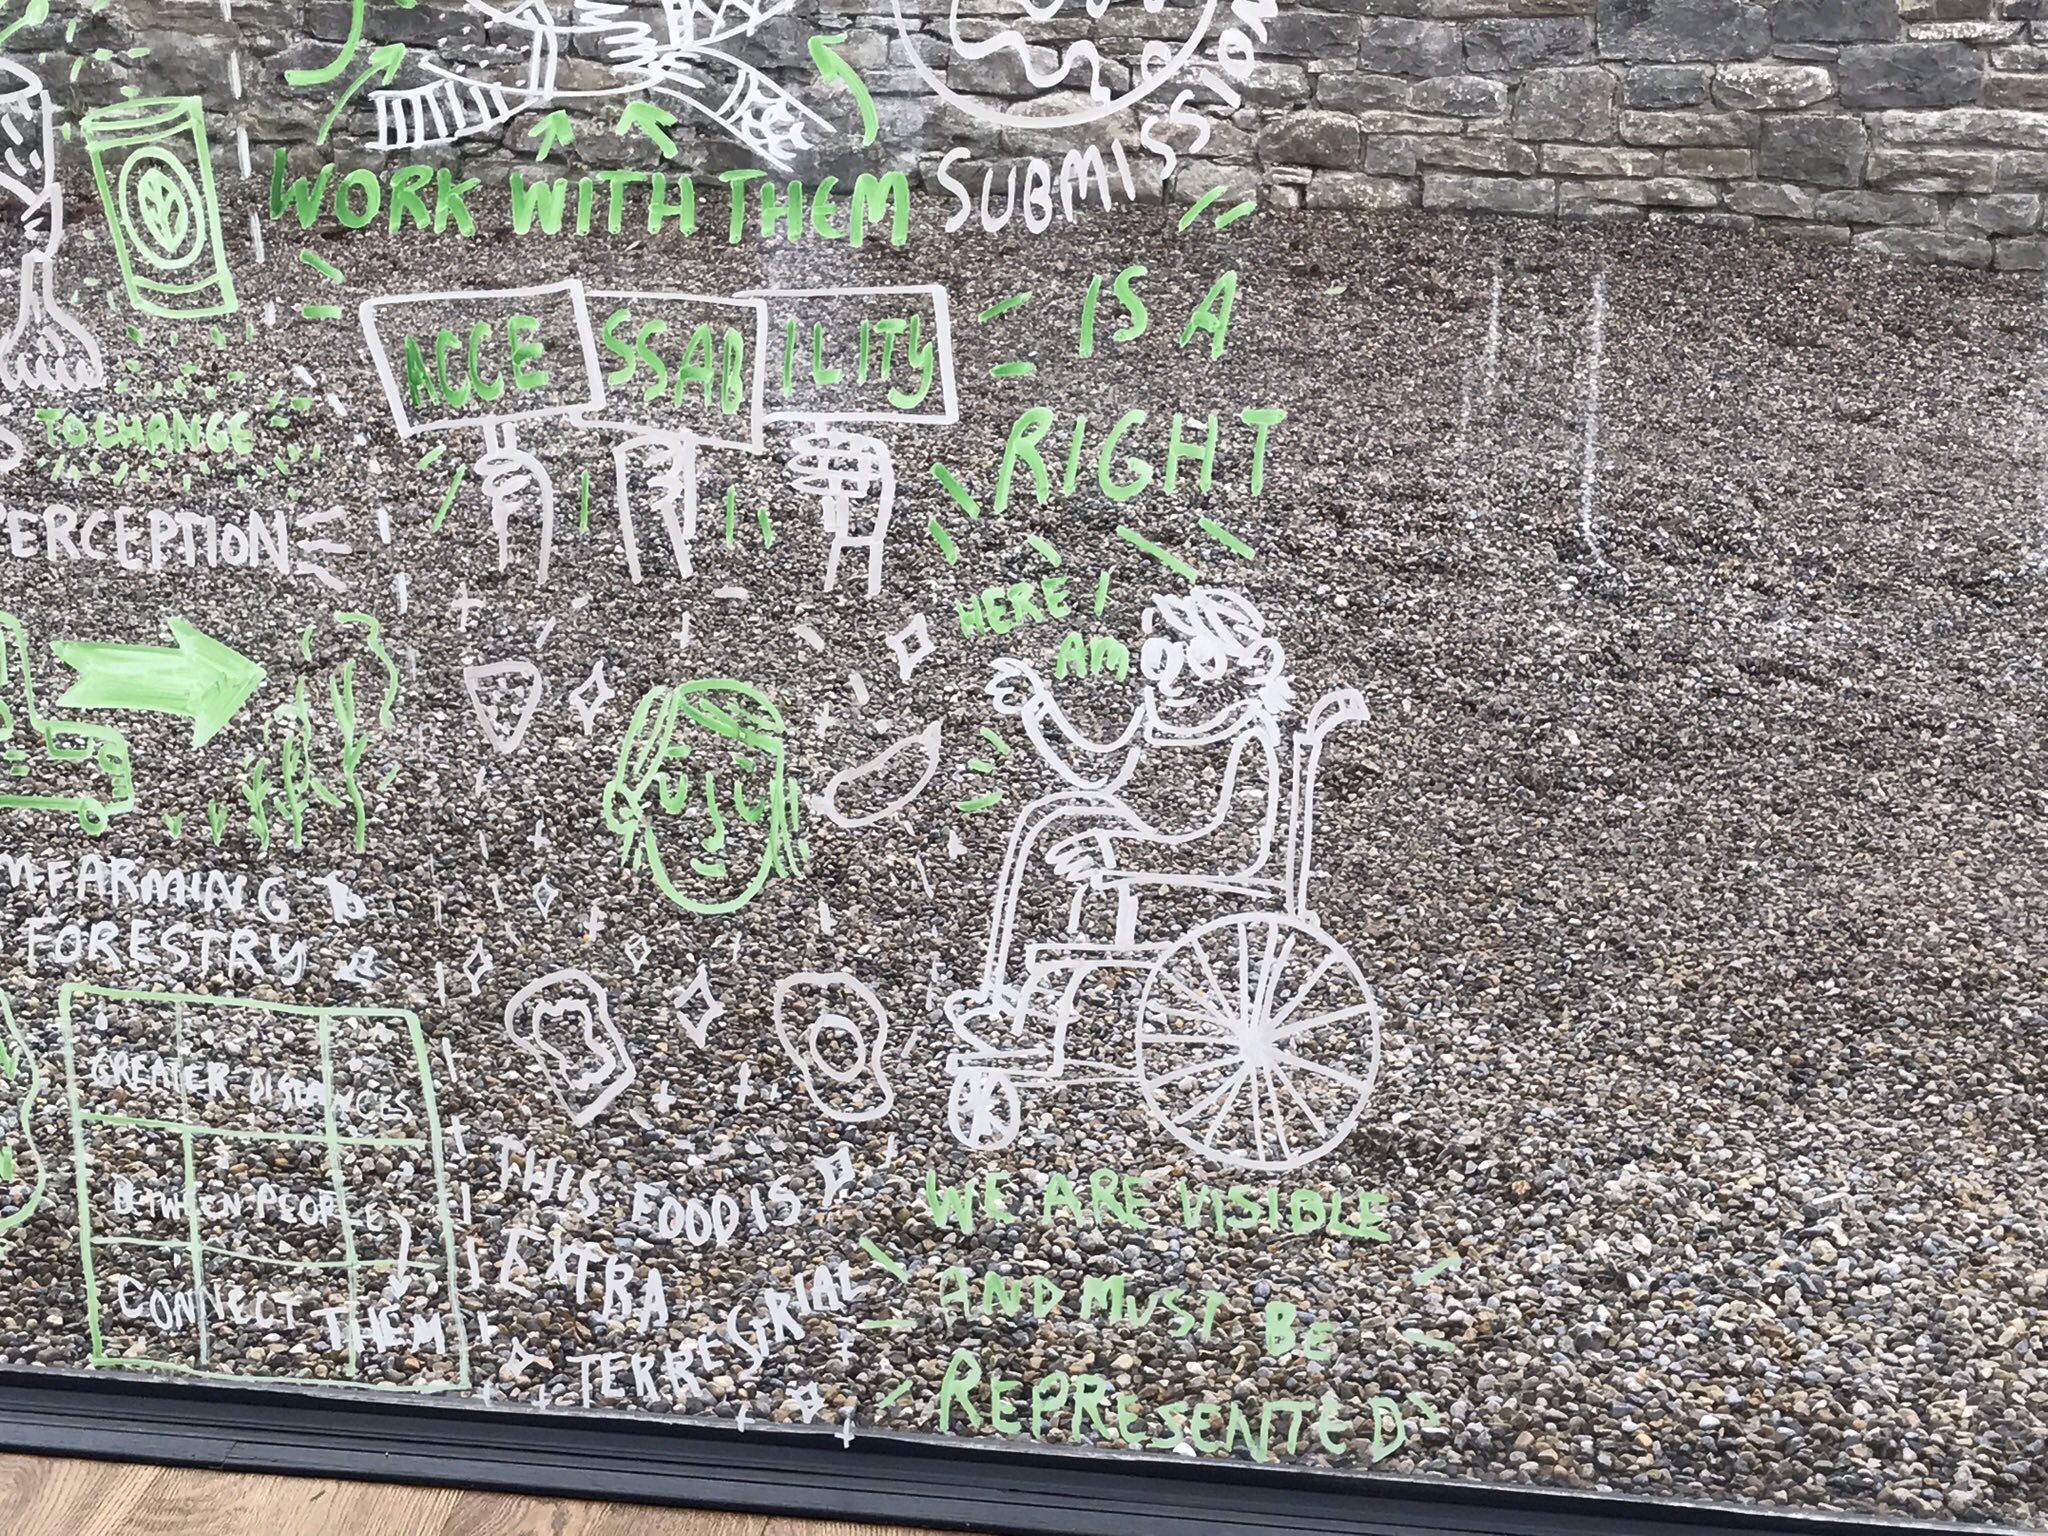 WORK WITH THEM
SUBMISSION
ACCE SSAB ILITY
IS A
RIGHT
TO CHANGE
PERCEPTION
HERE I
AM
FARMING TO
FORESTRY
GREATER DISTANCES
BETWEEN PEOPLE
CONNECT THEM
THIS FOOD IS
EXTRA
TERRESTRIAL
WE ARE VISIBLE
AND MUST BE
REPRESENTED